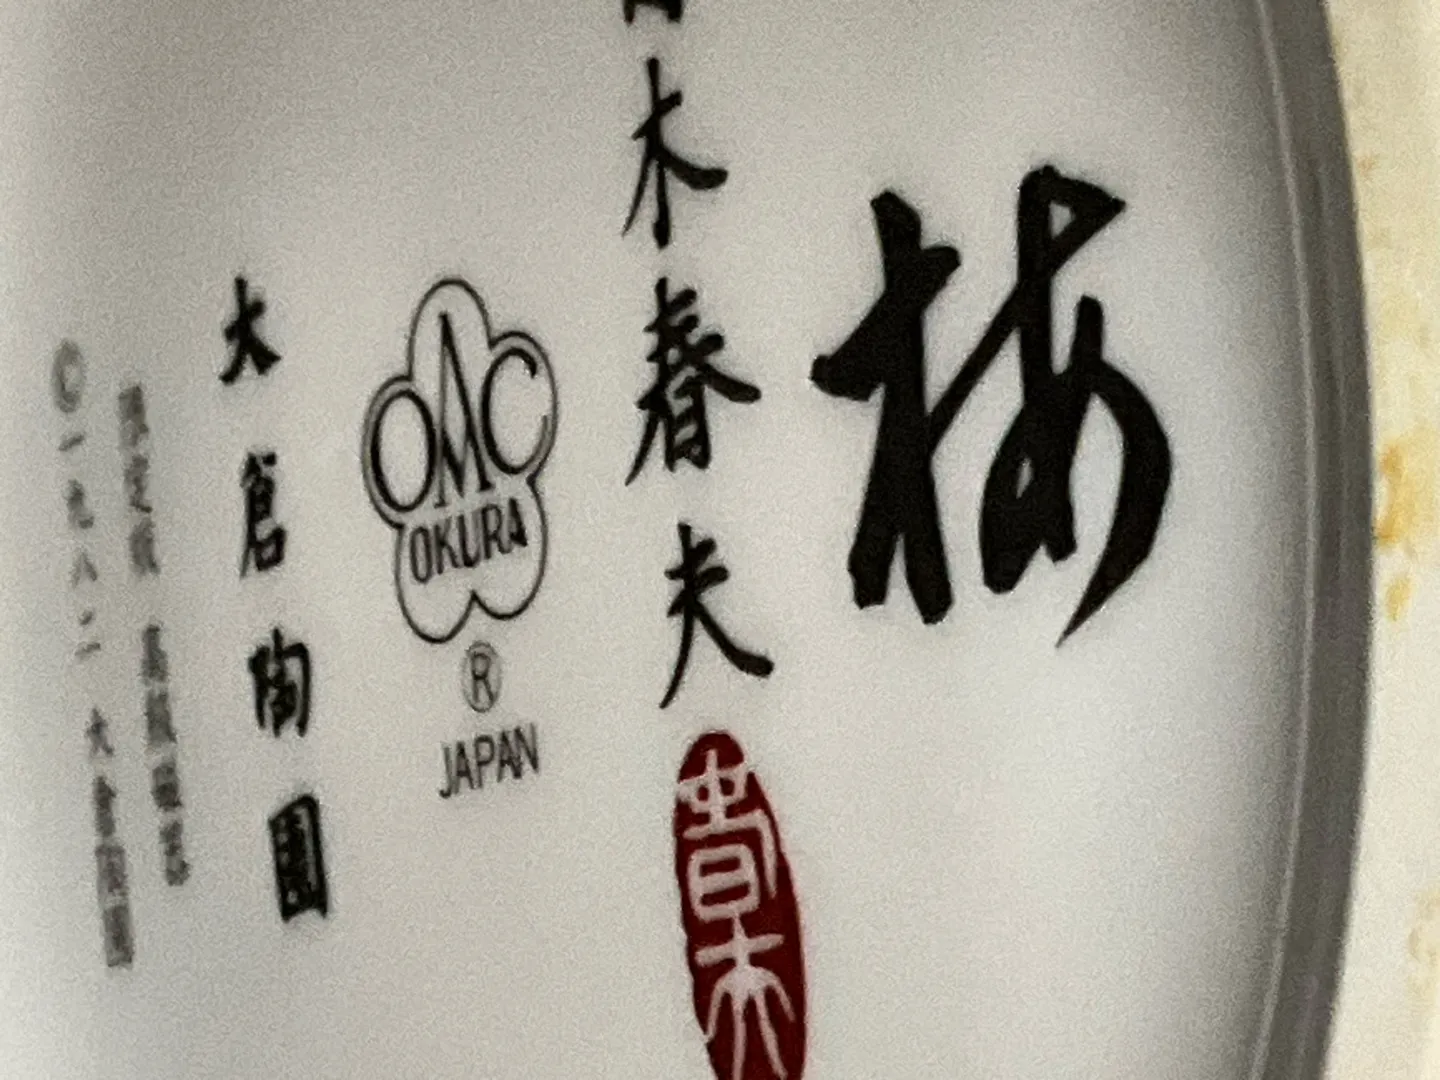 梅
木春夫
春木
OAC
OKURA
®
JAPAN
大倉陶園
限定版
©一九八二 大倉陶園